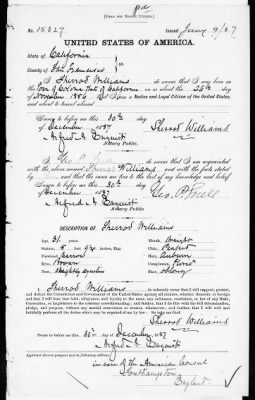 [FORM FOR NATIVE CITIZEN.]
No. 15327 Issued Jany 9/87
UNITED STATES OF AMERICA.
State of California
County of San Francisco
I, Sherrod Williams, do swear that I was born in
the Town of State of California, on or about the 26th day
of November 1854, that I am a Native and Loyal Citizen of the United States,
and about to travel abroad
Sworn to before me this 30th day
of December 1887 Sherrod Williams
Alfred A. Enquist
Notary Public.
I, Geo. P. do swear that I am acquainted
with the above named Sherrod Williams, and with the facts stated
by him, and that the same are true to the best of my knowledge and belief
Sworn to before me this 30th
day of December 1887
Alfred A. Enquist
Notary Public.
DESCRIPTION OF Sherrod Williams
Age, 31 years. Mouth, Straight
Stature, 5 feet inches, Eng. Chin, Perfect
Forehead, narrow Hair, Auburn
Eyes, Brown Complexion, Florid
Nose, Slightly Face,
I, Sherrod Williams, do solemnly swear that I will support, protect,
and defend the Constitution and Government of the United States against all enemies, whether domestic or foreign;
and that I will bear true faith, allegiance, and loyalty to the same, any ordinance, resolution, or law of any State,
Convention, or Legislature to the contrary notwithstanding; and further, that I do this with a full determination,
pledge, and purpose, without any mental reservation or evasion whatsoever; and further, that I will well and faith-
fully perform all the duties which may be required of me by law: So help me God.
Sherrod Williams
Sworn to before me this 30th day of December 1887
Alfred A. Enquist
Notary Public.
Applicant desires passport to be sent to following address:
in care of the American Consul
Southampton
England